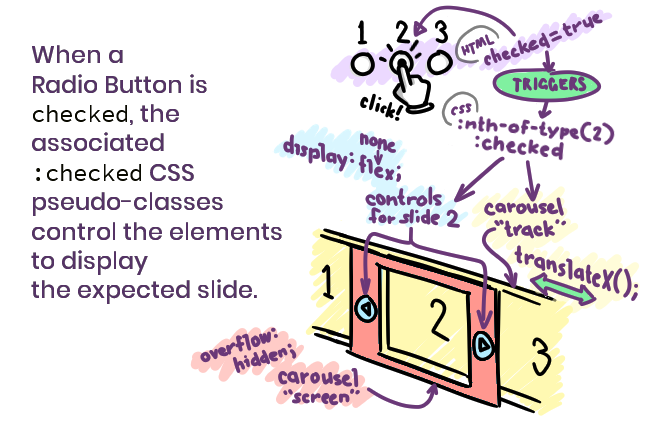 When a
Radio Button is
checked, the
associated
:checked CSS
pseudo-classes
control the elements
to display
the expected slide.
1 2 3
click!
HTML
checked=true
TRIGGERS
css
:nth-of-type(2)
:checked
none
display: flex;
controls
for slide 2
carousel
"track"
translateX();
1
2
3
overflow:
hidden;
carousel
"screen"